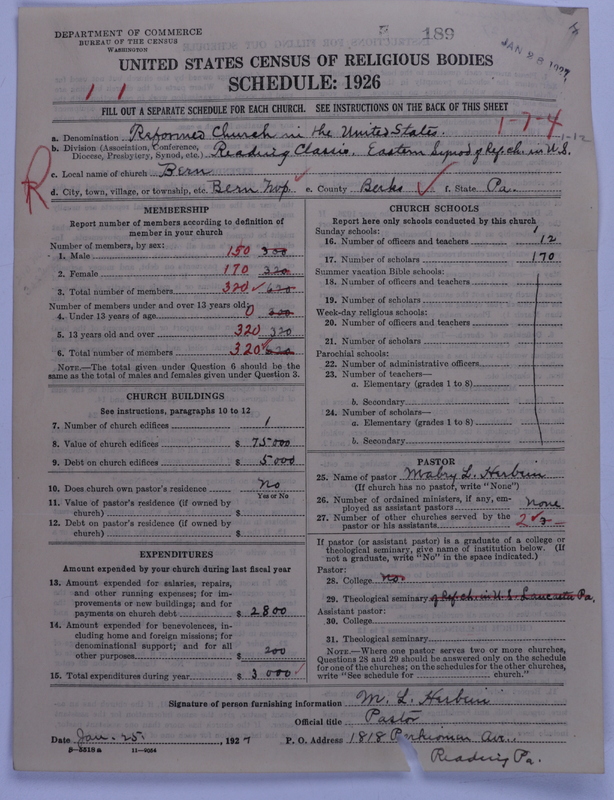 DEPARTMENT OF COMMERCE
BUREAU OF THE CENSUS
WASHINGTON
189
JAN 28 1927
UNITED STATES CENSUS OF RELIGIOUS BODIES
SCHEDULE: 1926
1 1
FILL OUT A SEPARATE SCHEDULE FOR EACH CHURCH. SEE INSTRUCTIONS ON THE BACK OF THIS SHEET
1-7-4
1-12
a. Denomination Reformed Church in the United States.
b. Division (Association, Conference, Diocese, Presbytery, Synod, etc.) Reading Classis. Eastern Synod of Ref. ch. in U.S.
R
c. Local name of church Bern
d. City, town, village, or township, etc. Bern Twp. e. County Berks f. State Pa.
MEMBERSHIP
Report number of members according to definition of
member in your church
Number of members, by sex:
1. Male 150 300
2. Female 170 320
3. Total number of members 320 620
Number of members under and over 13 years old:
4. Under 13 years of age 0 300
5. 13 years old and over 320 320
6. Total number of members 320 620
NOTE.—The total given under Question 6 should be
same as the total of males and females given under Question 3.
CHURCH BUILDINGS
See instructions, paragraphs 10 to 12
7. Number of church edifices 1
8. Value of church edifices $ 75000
9. Debt on church edifices $ 5000
10. Does church own pastor's residence No
Yes or No
11. Value of pastor's residence (if owned by
church) $
12. Debt on pastor's residence (if owned by
church) $
EXPENDITURES
Amount expended by your church during last fiscal year
13. Amount expended for salaries, repairs,
and other running expenses; for im-
provements or new buildings; and for
payments on church debt $ 2800
14. Amount expended for benevolences, in-
cluding home and foreign missions; for
denominational support; and for all
other purposes $ 200
15. Total expenditures during year $ 3000
CHURCH SCHOOLS
Report here only schools conducted by this church
Sunday schools: 1
16. Number of officers and teachers 12
17. Number of scholars 170
Summer vacation Bible schools:
18. Number of officers and teachers
19. Number of scholars
Week-day religious schools:
20. Number of officers and teachers
21. Number of scholars
Parochial schools:
22. Number of administrative officers
23. Number of teachers—
a. Elementary (grades 1 to 8)
b. Secondary
24. Number of scholars—
a. Elementary (grades 1 to 8)
b. Secondary
PASTOR
25. Name of pastor Mabry L. Herbein
(If church has no pastor, write "None")
26. Number of ordained ministers, if any, em-
ployed as assistant pastors None
27. Number of other churches served by the
pastor or his assistants 2 3
If pastor (or assistant pastor) is a graduate of a college or
theological seminary, give name of institution below. (If
not a graduate, write "No" in the space indicated.)
Pastor:
28. College no
29. Theological seminary of Ref. ch. in U.S. Lancaster Pa.
Assistant pastor:
30. College
31. Theological seminary
NOTE.—Where one pastor serves two or more churches,
Questions 28 and 29 should be answered only on the schedule
for one of the churches; on the schedules for the other churches,
write "See schedule for church."
Signature of person furnishing information M. L. Herbein
Official title Pastor
Date Jan. 25, 1927 P. O. Address 1818 Perkiomen Ave.,
8-5518 a 11-9054
Reading Pa.